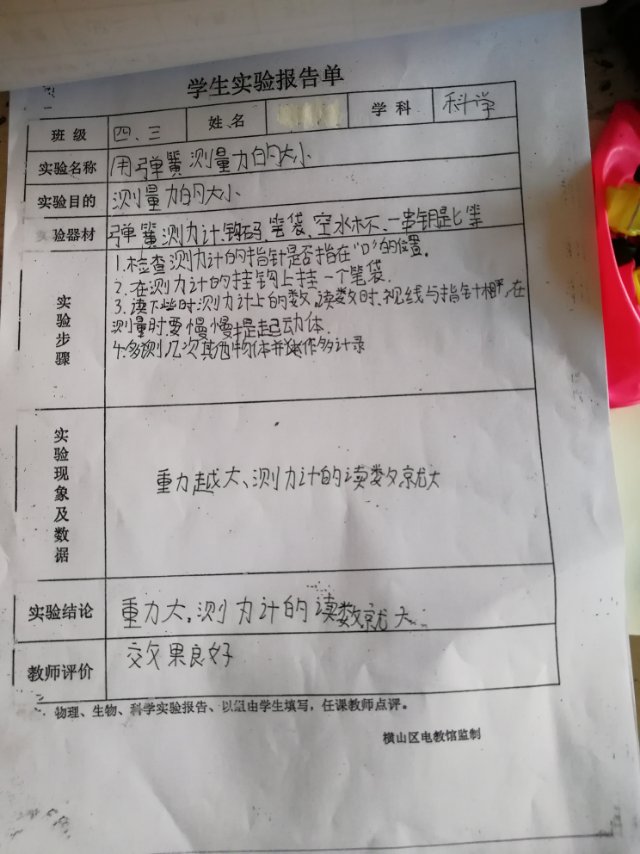 学生实验报告单
班级 四、三 姓名 学科 科学
实验名称 用弹簧测量力的大小
实验目的 测量力的大小
实验器材 弹簧测力计、钩码、笔袋、空水杯、一串钥匙等
实验步骤
1.检查测力计的指针是否指在"0"的位置。
2.在测力计的挂钩上挂一个笔袋.
3.读下些时测力计上的数,读数时.视线与指针相平,在
测量时要慢慢提起动体.
4.多测几次其他物体并作多记录
实验现象及数据
重力越大、测力计的读数就大
实验结论 重力大,测力计的读数就大
教师评价 效果良好
物理、生物、科学实验报告、以组由学生填写,任课教师点评。
横山区电教馆监制